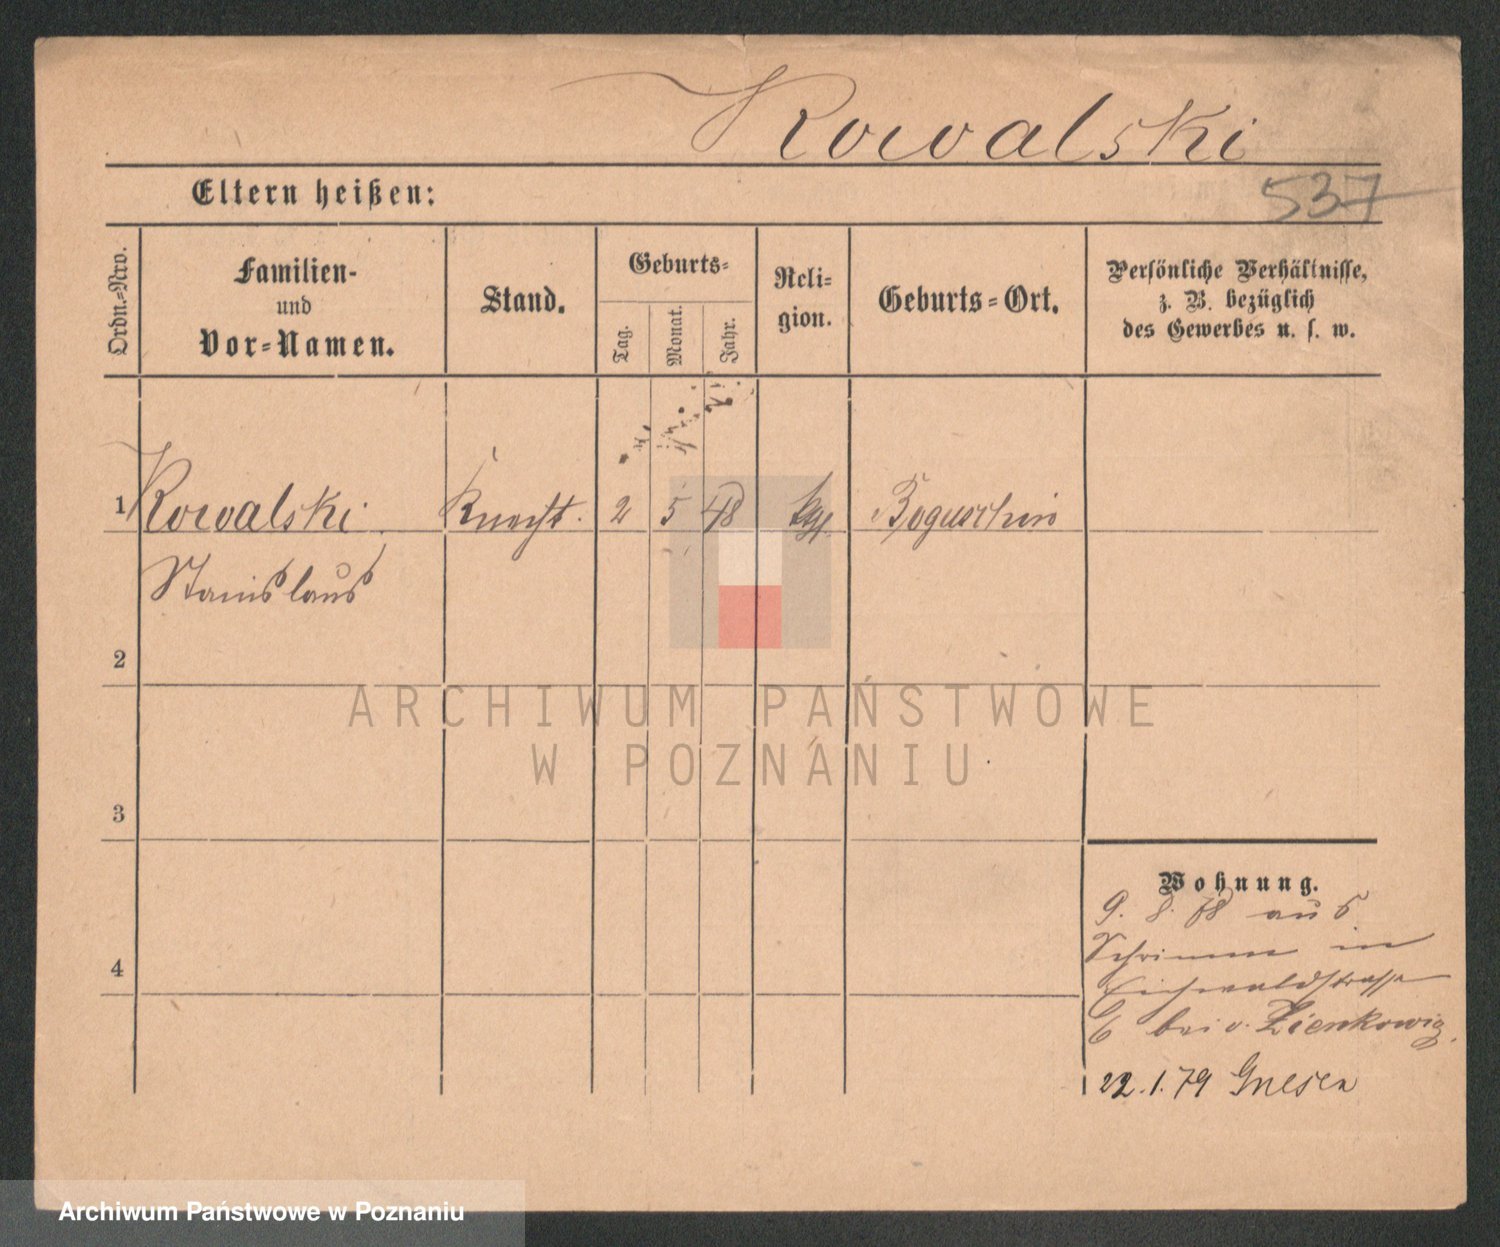 Kowalski
Eltern heißen:
537
Ordn.-Nro.
Familien-
und
Vor-Namen.
Stand.
Geburts-
Tag.
Monat.
Jahr.
Reli-
gion.
Geburts-Ort.
Persönliche Verhältnisse,
z. B. bezüglich
des Gewerbes u. s. w.
1 Kowalski Knecht. 2 5 48 kth. Boguschin
Stanislaus
2
3
4
Wohnung.
9. 8. 78 aus
Schrimm in
Eichwaldstrasse
6 bei v. Zienkowicz.
22.1.79 Gnesen
ARCHIWUM PAŃSTWOWE
W POZNANIU
Archiwum Państwowe w Poznaniu